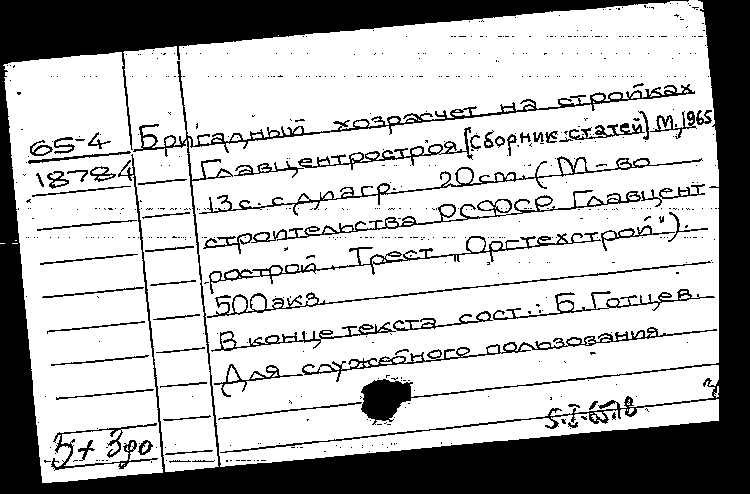 65-4
18784
Бригадный хозрасчет на стройках
Главцентростроя. [Сборник статей] М., 1965
13с. с диагр. 20см. (М-во
строительства РСФСР. Главцент-
рострой. Трест „Оргтехстрой").
500экз.
В конце текста сост.: Б. Готцев.
Для служебного пользования.